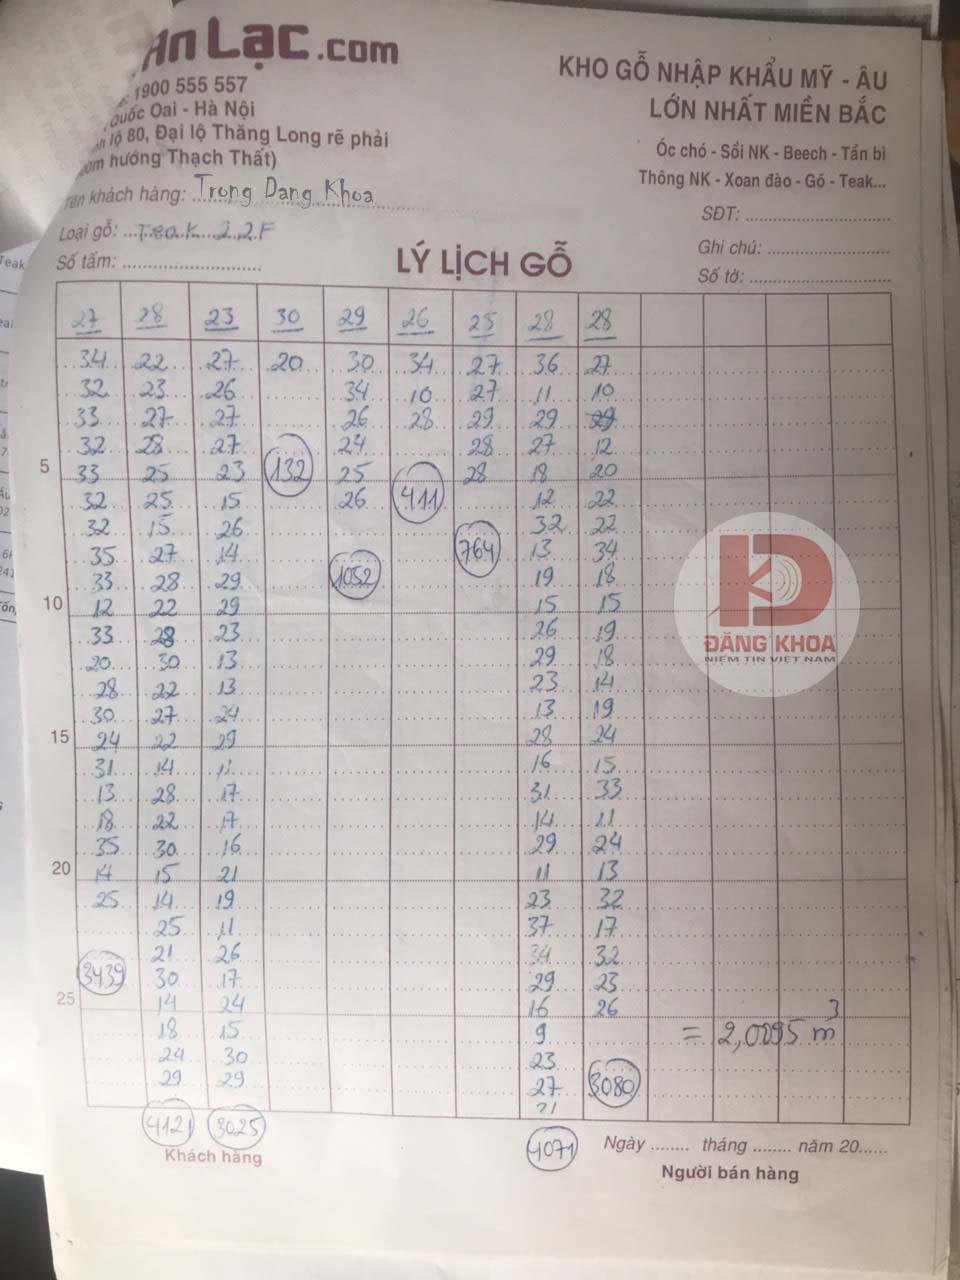 An Lạc.com
1900 555 557
Quốc Oai - Hà Nội
lộ 80, Đại lộ Thăng Long rẽ phải
hướng Thạch Thất)
KHO GỖ NHẬP KHẨU MỸ - ÂU
LỚN NHẤT MIỀN BẮC
Óc chó - Sồi NK - Beech - Tần bì
Thông NK - Xoan đào - Gõ - Teak...
Tên khách hàng: Trong Dang Khoa
SĐT:
Loại gỗ: Teak 2.2F
Ghi chú:
Số tấm:
LÝ LỊCH GỖ
Số tờ:
27 28 23 30 29 26 25 28 28
34 22 27 20 30 34 27 36 27
32 23 26 34 10 27 11 10
33 27 27 26 28 29 29
32 28 27 24 28 27 12
5 33 25 23 132 25 28 18 20
32 25 15 26 411 12 22
32 15 26 32 22
35 27 14 764 13 34
33 28 29 1052 19 18
10 12 22 29 15 15
33 28 23 26 19
20 30 13 29 18
28 22 13 23 14
30 27 24 13 19
15 24 22 29 28 24
31 14 11 16 15
13 28 17 31 33
18 22 17 14 11
35 30 16 29 24
20 14 15 21 11 13
25 14 19 23 32
25 11 37 17
21 26 34 32
3439 30 17 29 23
25 14 24 16 26
18 15 9
= 2,0095 m3
24 30 23
29 29 27 3080
21
4121 3025 4071
ĐĂNG KHOA
NIỀM TIN VIỆT NAM
Khách hàng
Ngày ........ tháng ........ năm 20......
Người bán hàng